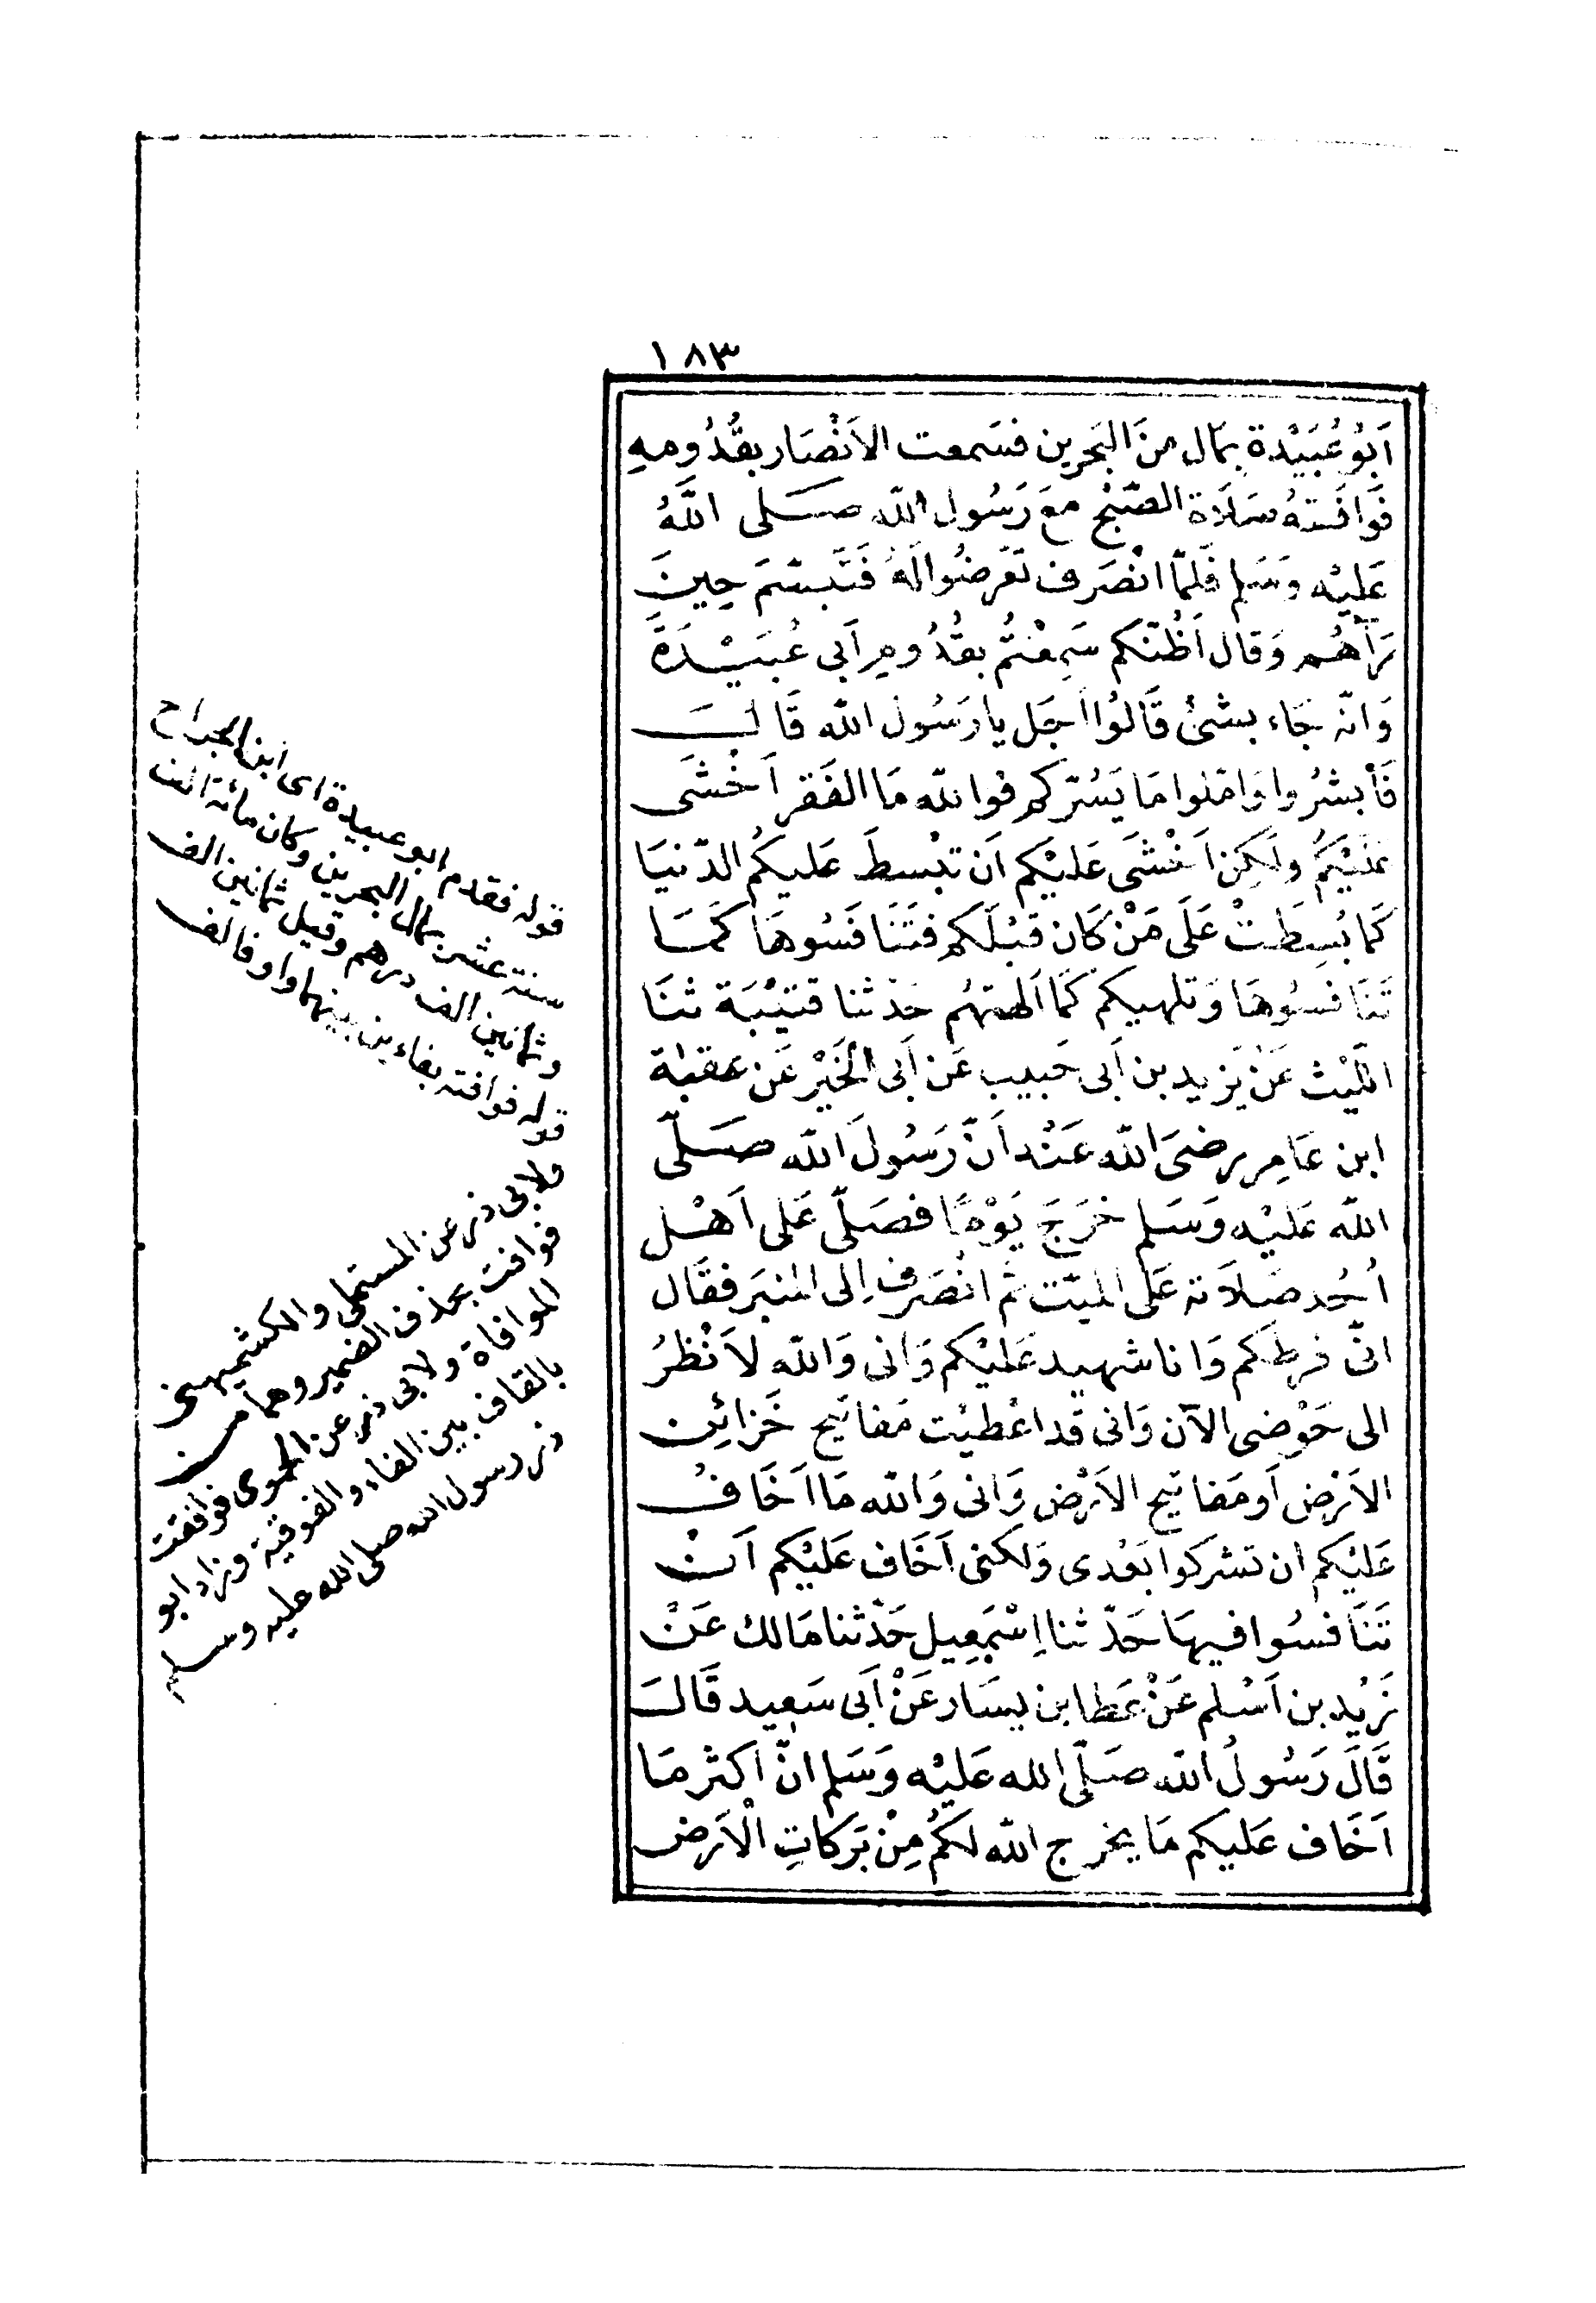 ١٨٣
اَبُو عُبَيْدة بمَال منَ البَحرين فسَمعت الاَنْصَار بقُدُومهِ
فوَافَتهُ صَلاَة الصّبْح معَ رَسُول الله صَلى اللهُ
عَليْه وَسَلم فَلمّا انْصَرَف تعَرضُوا لَهُ فَتَبسّمَ حِينَ
رَآهُم وَقال اَظُنّكم سَمِعْتُم بقُدُومِ اَبى عُبَيْدَةَ
وَانّه جَاء بشئ قَالوُا اَجَل يا رَسُول الله قَالَ
فَأبشرُوا وَامّلوا مَا يَسُرّكم فوالله مَا الفَقر اَخْشَى
عَليْكمُ ولَكِن اَخْشَى عَليْكم اَن تبْسطَ عَليكُم الدّنيَا
كَما بُسِطَتْ عَلَى مَنْ كَان قبْلَكم فتَنَافَسُوهَا كَمَا
تَنَافسُوهَا وَتلهيكم كَما اَلهتهُم حَدّثنا قتيْبَة ثنَا
اللّيْث عَنْ يَزيد بن اَبى حَبيب عَن اَبى الخَيْر عَن عقبة
ابن عَامِر رضىَ الله عَنْه اَنّ رَسُولَ الله صَلّى
الله عَليْه وَسَلم خرَجَ يَوْمًا فصَلّى عَلى اَهْل
اُحُد صَلاَته عَلَى الميّت ثم انْصَرف اِلى المنبَر فقَال
انّى فرطكم وَانا شهيد عَليْكم وَانى وَالله لاَنْظرُ
الى حَوْضى الاَن وَانى قد اعْطيْت مَفاتيح خَزائِن
الاَرْض اَو مَفاتيح الاَرْض وَانى وَالله مَا اَخَافُ
عَليْكم ان تشركوا بَعْدى وَلكنى اَخَاف عَليْكم اَنْ
تَنَافسُوا فيهَا حَدّثنا اِسْمَعِيل حَدّثنا مَالك عَنْ
زَيْد بن اَسْلم عَنْ عَطا بن يسَار عَنْ اَبى سَعِيد قَالَ
قَالَ رَسُولُ الله صَلّى الله عَليْه وَسَلم انّ اكثر مَا
اَخَاف عَليكم مَا يخرج الله لكمُ مِنْ بَركاتِ الْاَرض
قوله فقدم ابو عبيدة اى ابن الجراح
سنة عشر بمال البحرين وكان مائة الف
وثمانين الف درهم وقيل ثمانين الف
قوله فوافته بفاءين بينهما واو فالف
ولابى ذر عن المستملى والكشميهنى
فوافت بحذف الضمير وهما من
الموافاة ولابى ذر عن الحموى فوافقت
بالقاف بين الفاء والفوقية وزاد ابو
ذر رسول الله صلى الله عليه وسلم